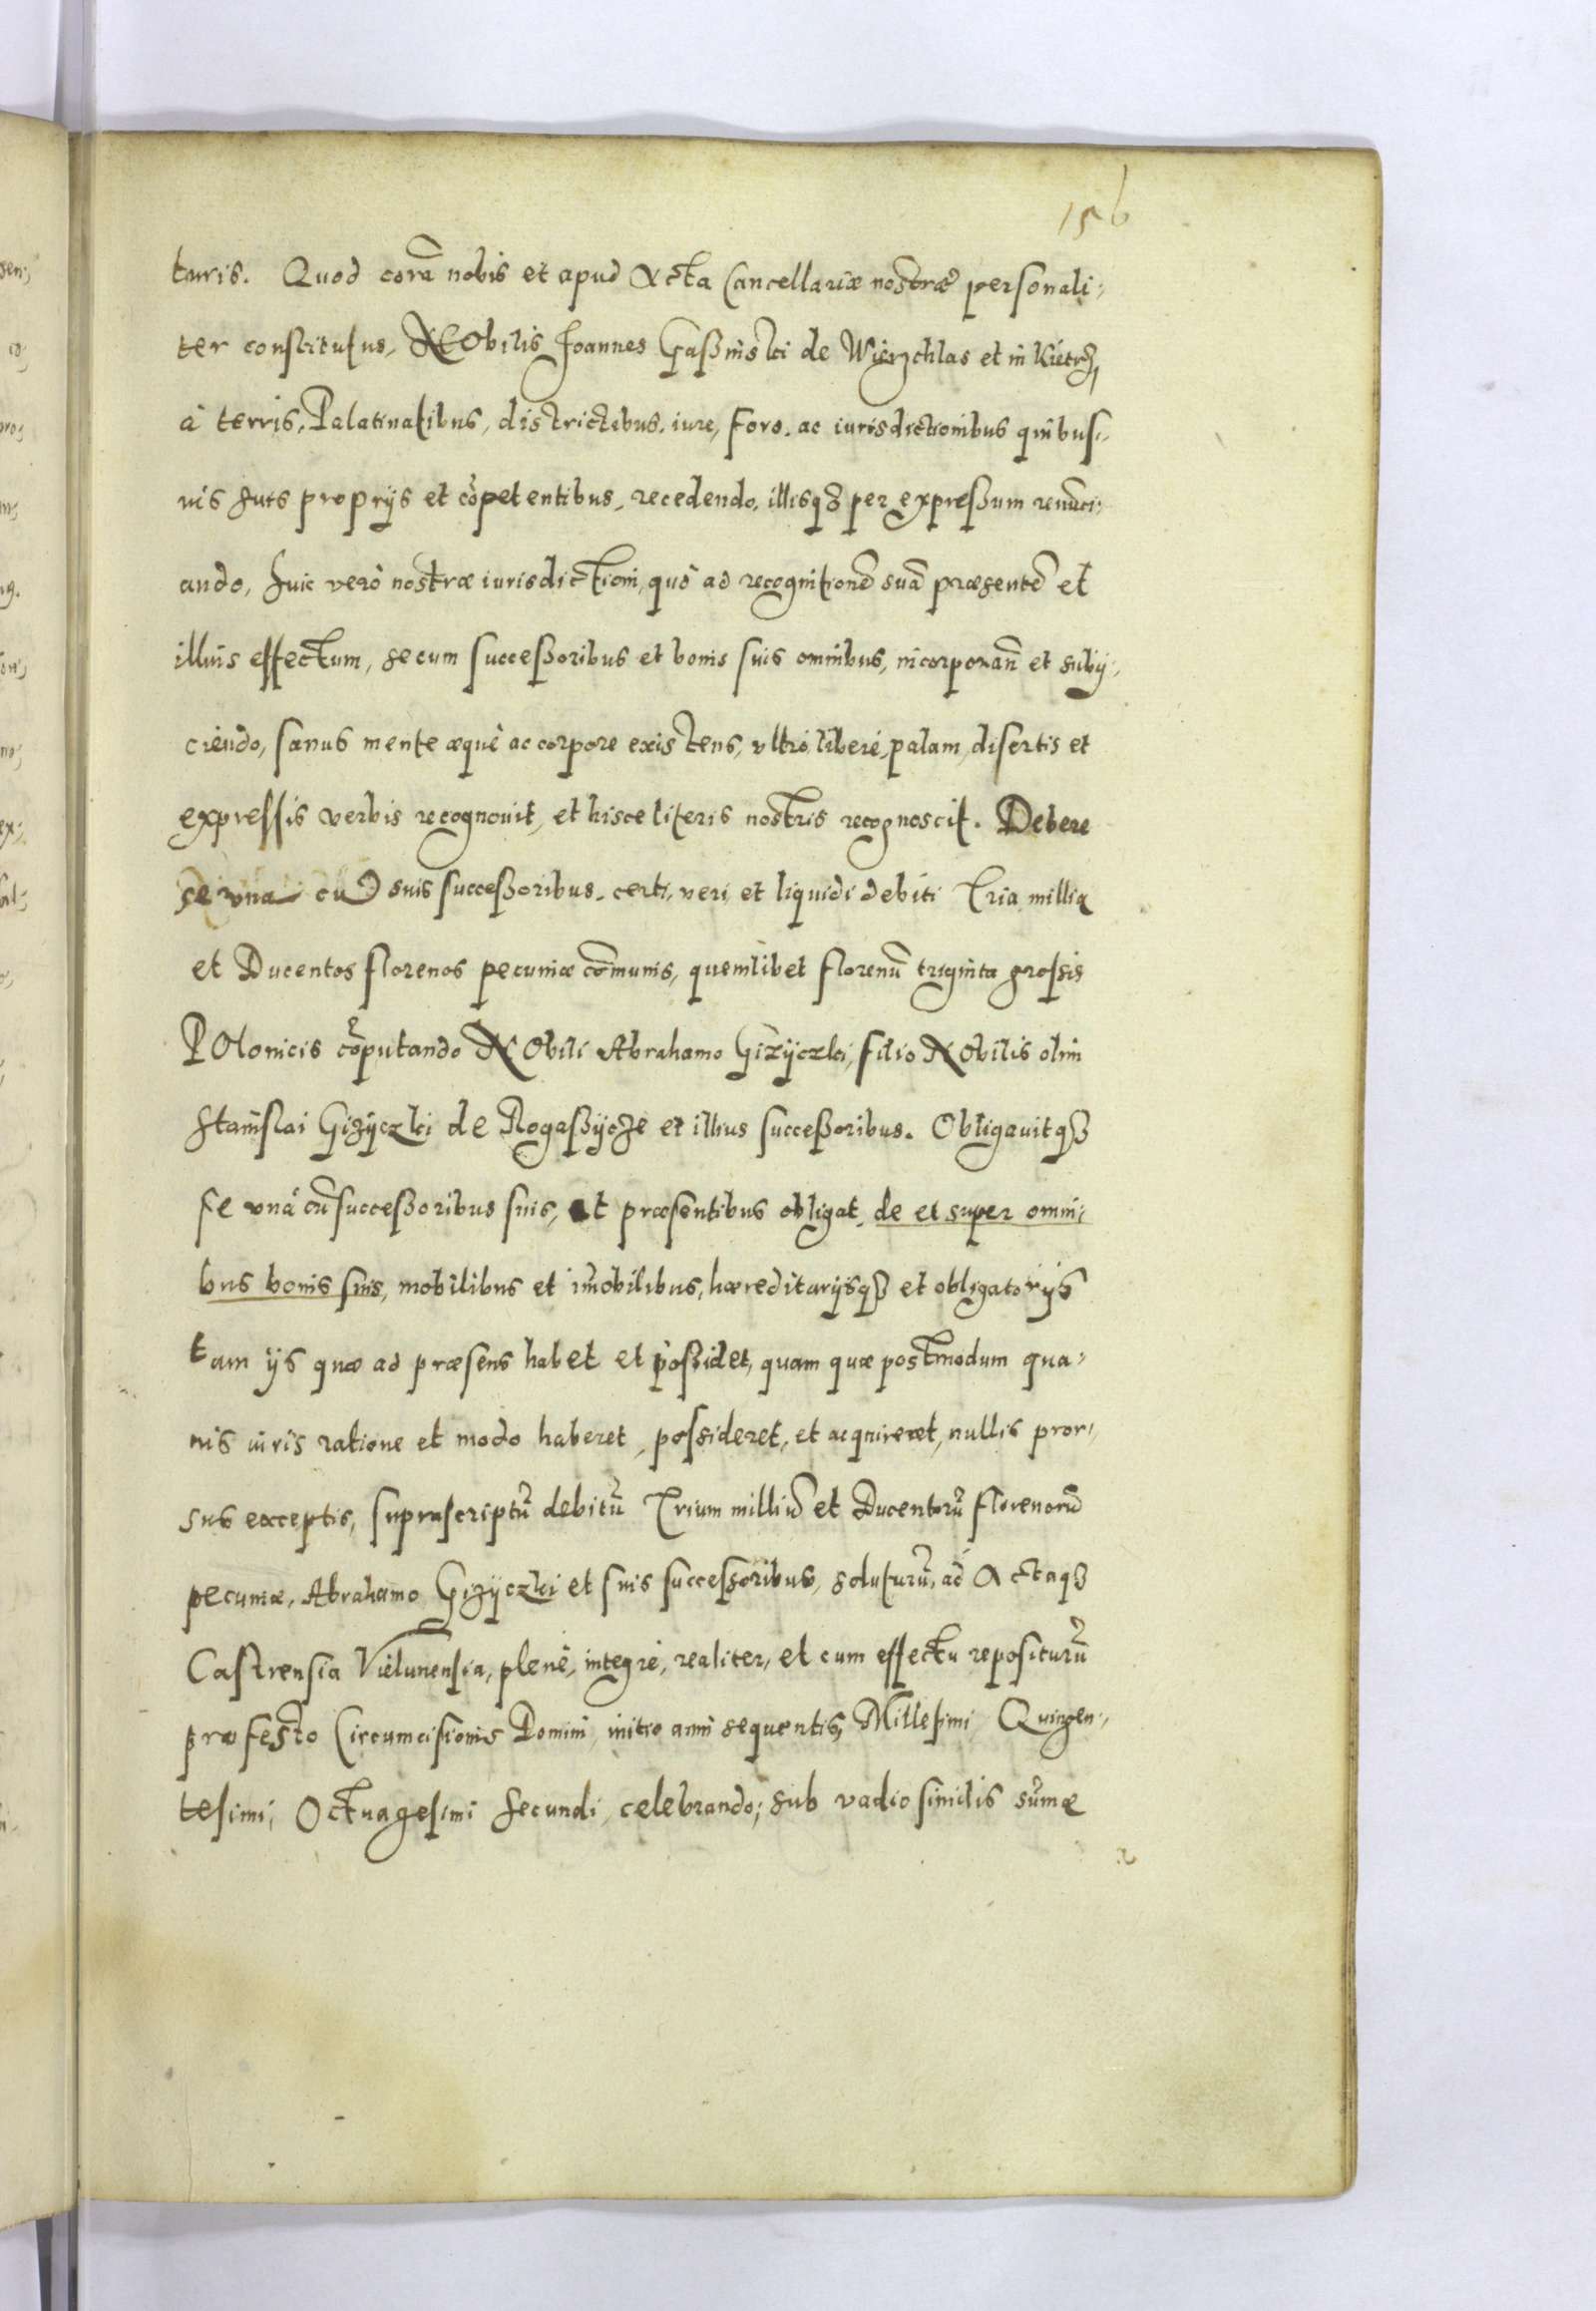 156
turis. Quod corã nobis et apud Acta Cancellariæ nostræ personali-
ter constitutus, Nobilis Joannes Gaßinski de Wierzchlas et in Kietrz,
à terris, Palatinatibus, districtibus, iure, foro, ac iurisdictionibus quibus-
uis suis proprijs et cõpetentibus, recedendo, illisq3 per expreßum renũci-
ando, huic verò nostræ iurisdictioni, quò ad recognitionẽ suã præsentẽ et
illius effectum, se cum succeßoribus et bonis suis omnibus, incorporan̄ et subij-
ciendo, sanus mente æquè ac corpore existens, vltrò, liberè, palam, disertis et
expressis verbis recognouit, et hisce literis nostris recognoscit. Debere
se vna cũ suis succeßoribus, certi, veri, et liquidi debiti Tria millia
et Ducentos florenos pecuniæ cõmunis, quemlibet florenũ triginta grossis
Polonicis cõputando Nobili Abrahamo Gizÿczki, filio Nobilis olim
Stanislai Gizÿczki de Rogaßÿcze et illius succeßoribus. Obligauitq3
se vnà cũ succeßoribus suis, et præsentibus obligat, de et super omni-
bus bonis suis, mobilibus et im̃obilibus, hæreditarijsq3 et obligatorijs
tam ijs quæ ad præsens habet et poßidet, quam quæ postmodum qua-
uis iuris ratione et modo haberet, possideret, et acquireret, nullis pror-
sus exceptis, suprascriptũ debitũ Trium milliũ et Ducentorũ florenorũ
pecuniæ, Abrahamo Gizÿczki et suis successoribus, soluturũ, ad Actaq3
Castrensia Vielunensia, plenè, integrè, realiter, et cum effectu repositurũ
pro festo Circumcisionis Domini, initio anni sequentis, Millesimi, Quingen-
tesimi, Octuagesimi secundi, celebrando; sub vadio similis sum̃æ